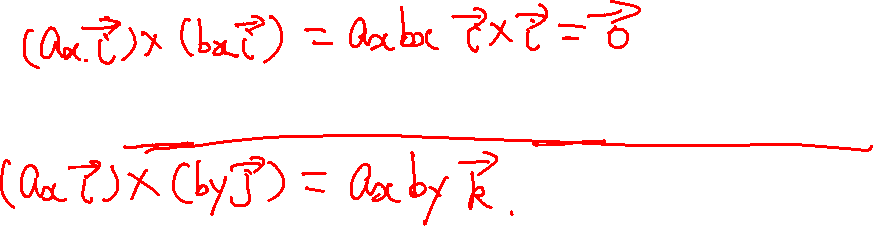 (aₓ.i⃗)×(bₓi⃗) = aₓbₓ i⃗×i⃗ = 0⃗
(aₓ i⃗)×(b_y j⃗) = aₓ b_y k⃗.